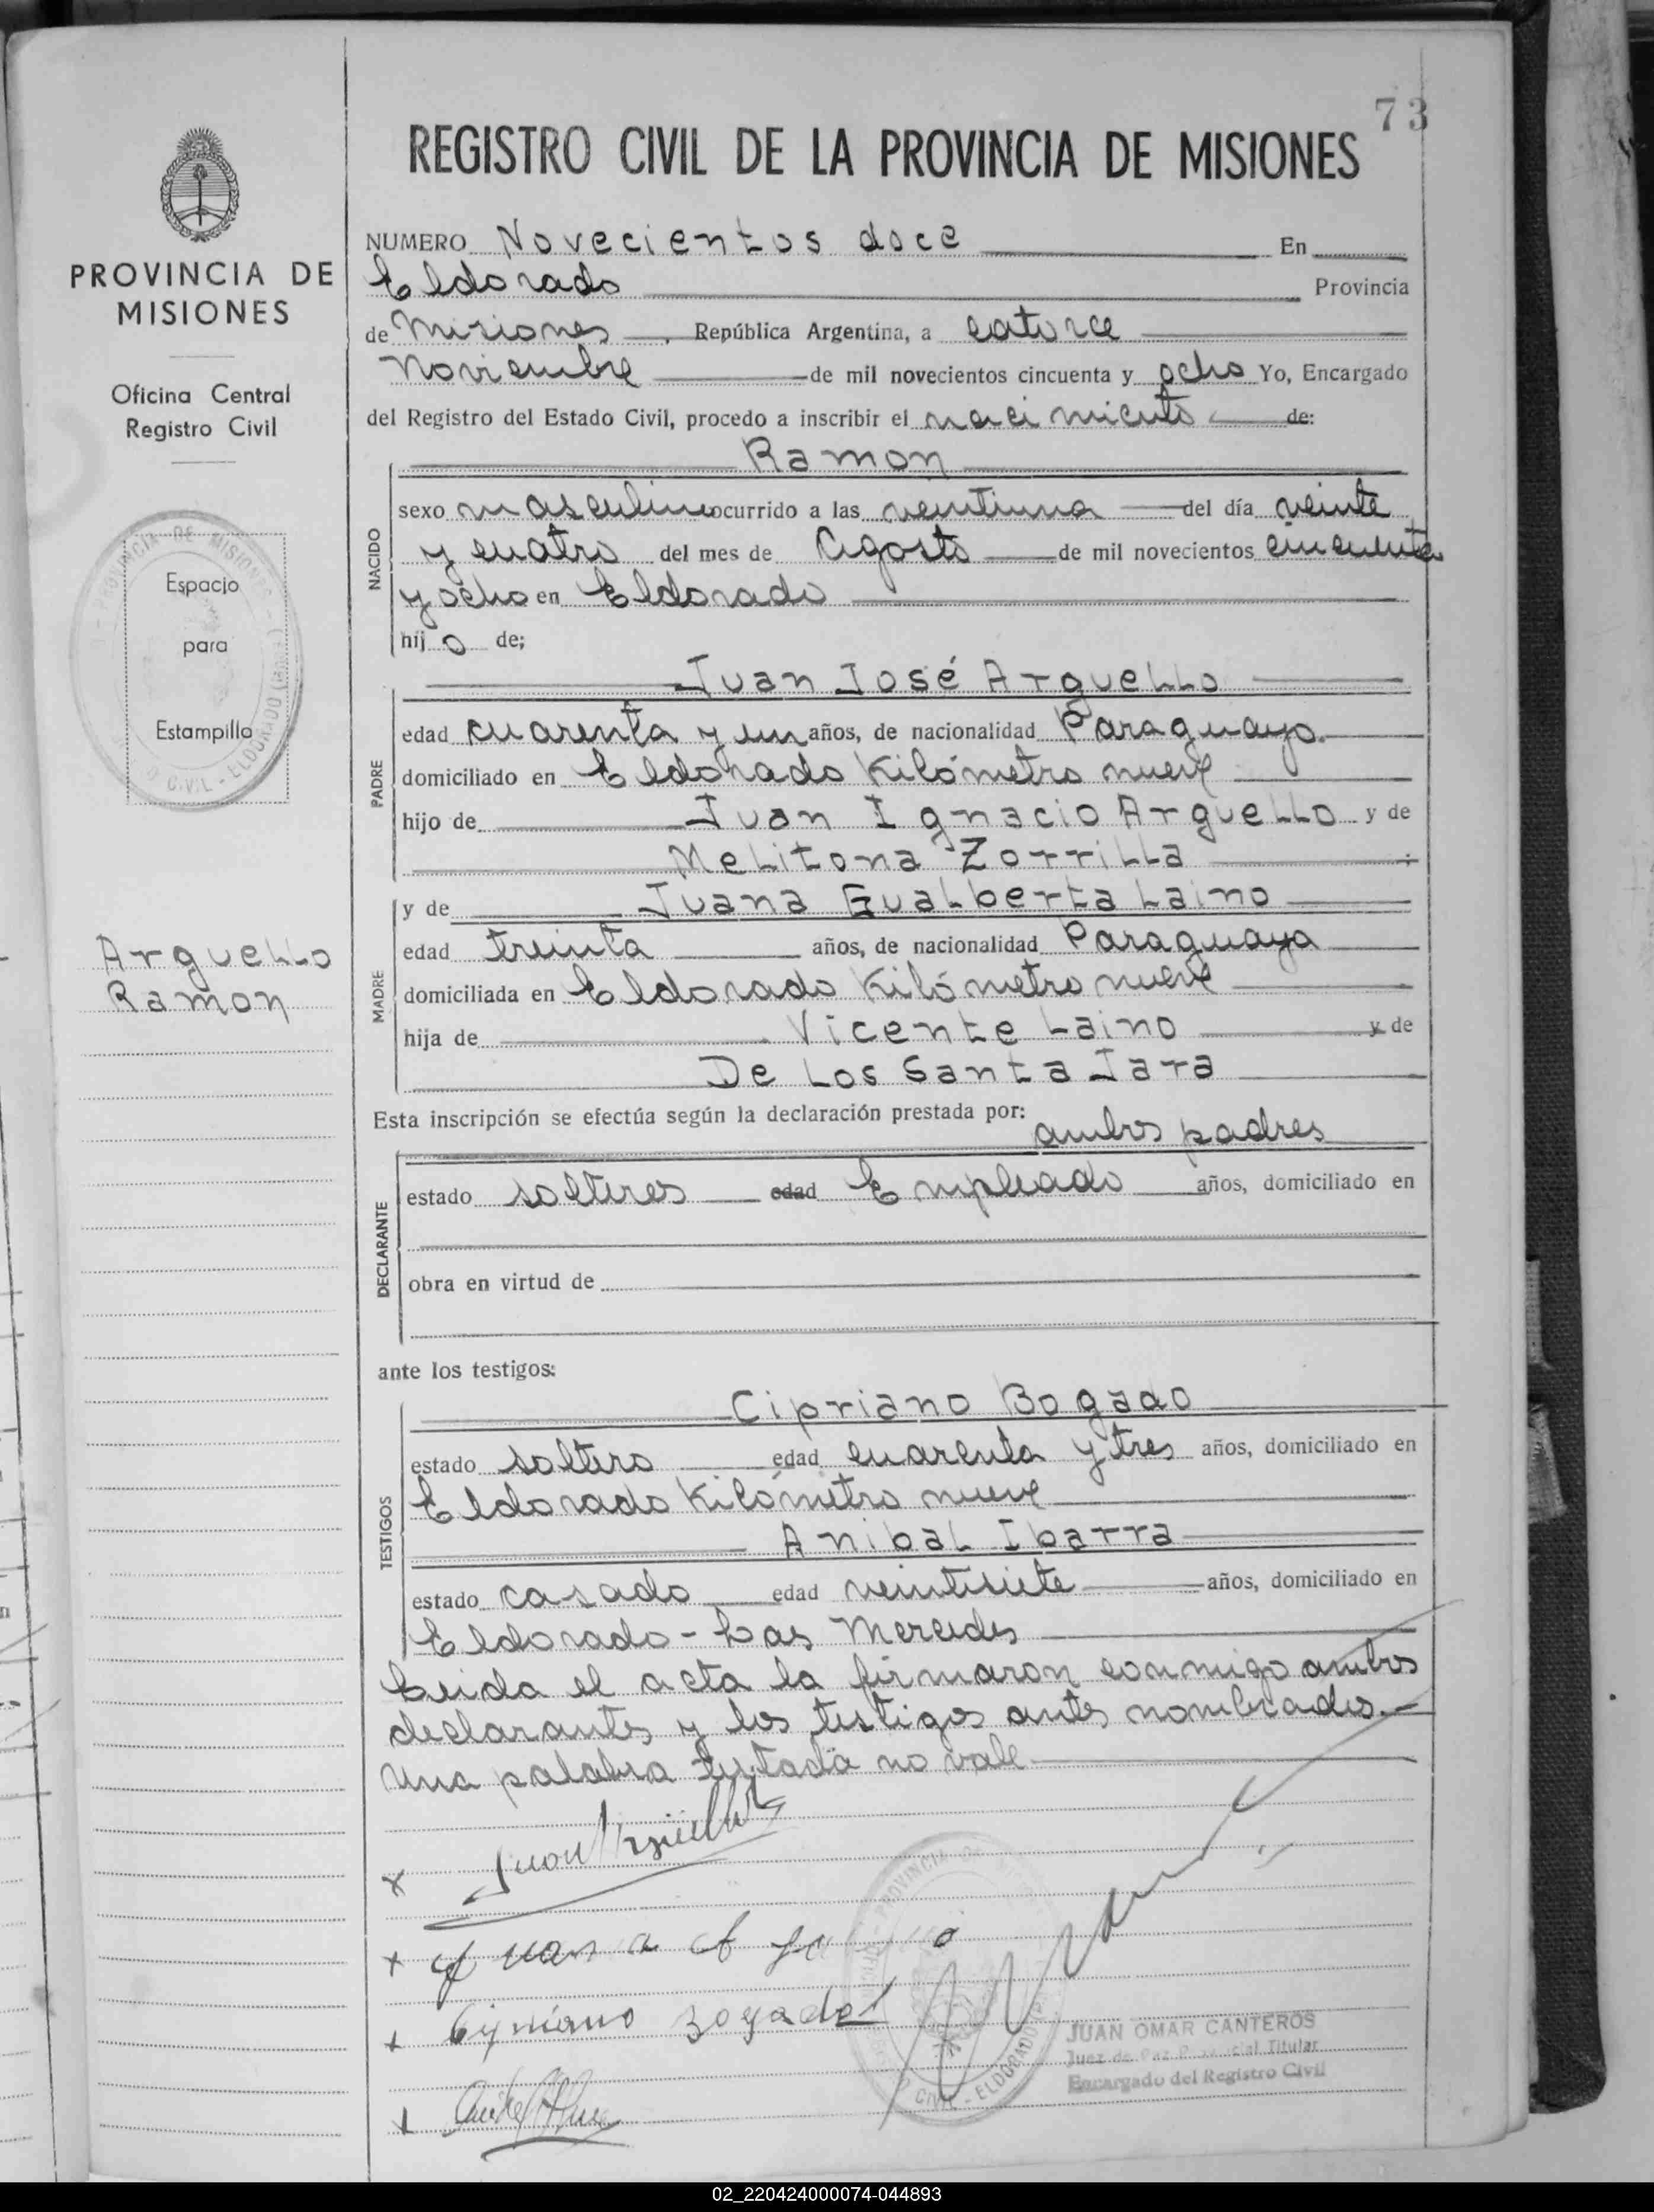 73
REGISTRO CIVIL DE LA PROVINCIA DE MISIONES
PROVINCIA DE
MISIONES
Oficina Central
Registro Civil
Espacio
para
Estampilla
Arguello
Ramon
NUMERO Novecientos doce En
Eldorado Provincia
de Misiones, República Argentina, a catorce
Noviembre de mil novecientos cincuenta y ocho Yo, Encargado
del Registro del Estado Civil, procedo a inscribir el nacimiento de:
Ramon
NACIDO
sexo masculino ocurrido a las veintiuna del día veinte
y cuatro del mes de Agosto de mil novecientos cincuenta
y ocho en Eldorado
hijo de;
Juan José Arguello
PADRE
edad cuarenta y un años, de nacionalidad Paraguayo.
domiciliado en Eldorado Kilómetro nueve
hijo de Juan Ignacio Arguello y de
Melitona Zorrilla
MADRE
y de Juana Gualberta Laino
edad treinta años, de nacionalidad Paraguaya
domiciliada en Eldorado Kilómetro nueve
hija de Vicente Laino y de
De Los Santa Jara
Esta inscripción se efectúa según la declaración prestada por:
ambos padres
DECLARANTE
estado solteros edad Empleado años, domiciliado en
obra en virtud de
ante los testigos:
Cipriano Bogado
TESTIGOS
estado soltero edad cuarenta y tres años, domiciliado en
Eldorado Kilómetro nueve
Anibal Ibarra
estado casado edad veintisiete años, domiciliado en
Eldorado - Las Mercedes
Leida el acta la firmaron conmigo ambos
declarantes y los testigos antes nombrados.
Una palabra testada no vale
x Juan Arguello
x Juana
x Cipriano Bogado
x
JUAN OMAR CANTEROS
Juez de Paz Provincial Titular
Encargado del Registro Civil
02_220424000074-044893